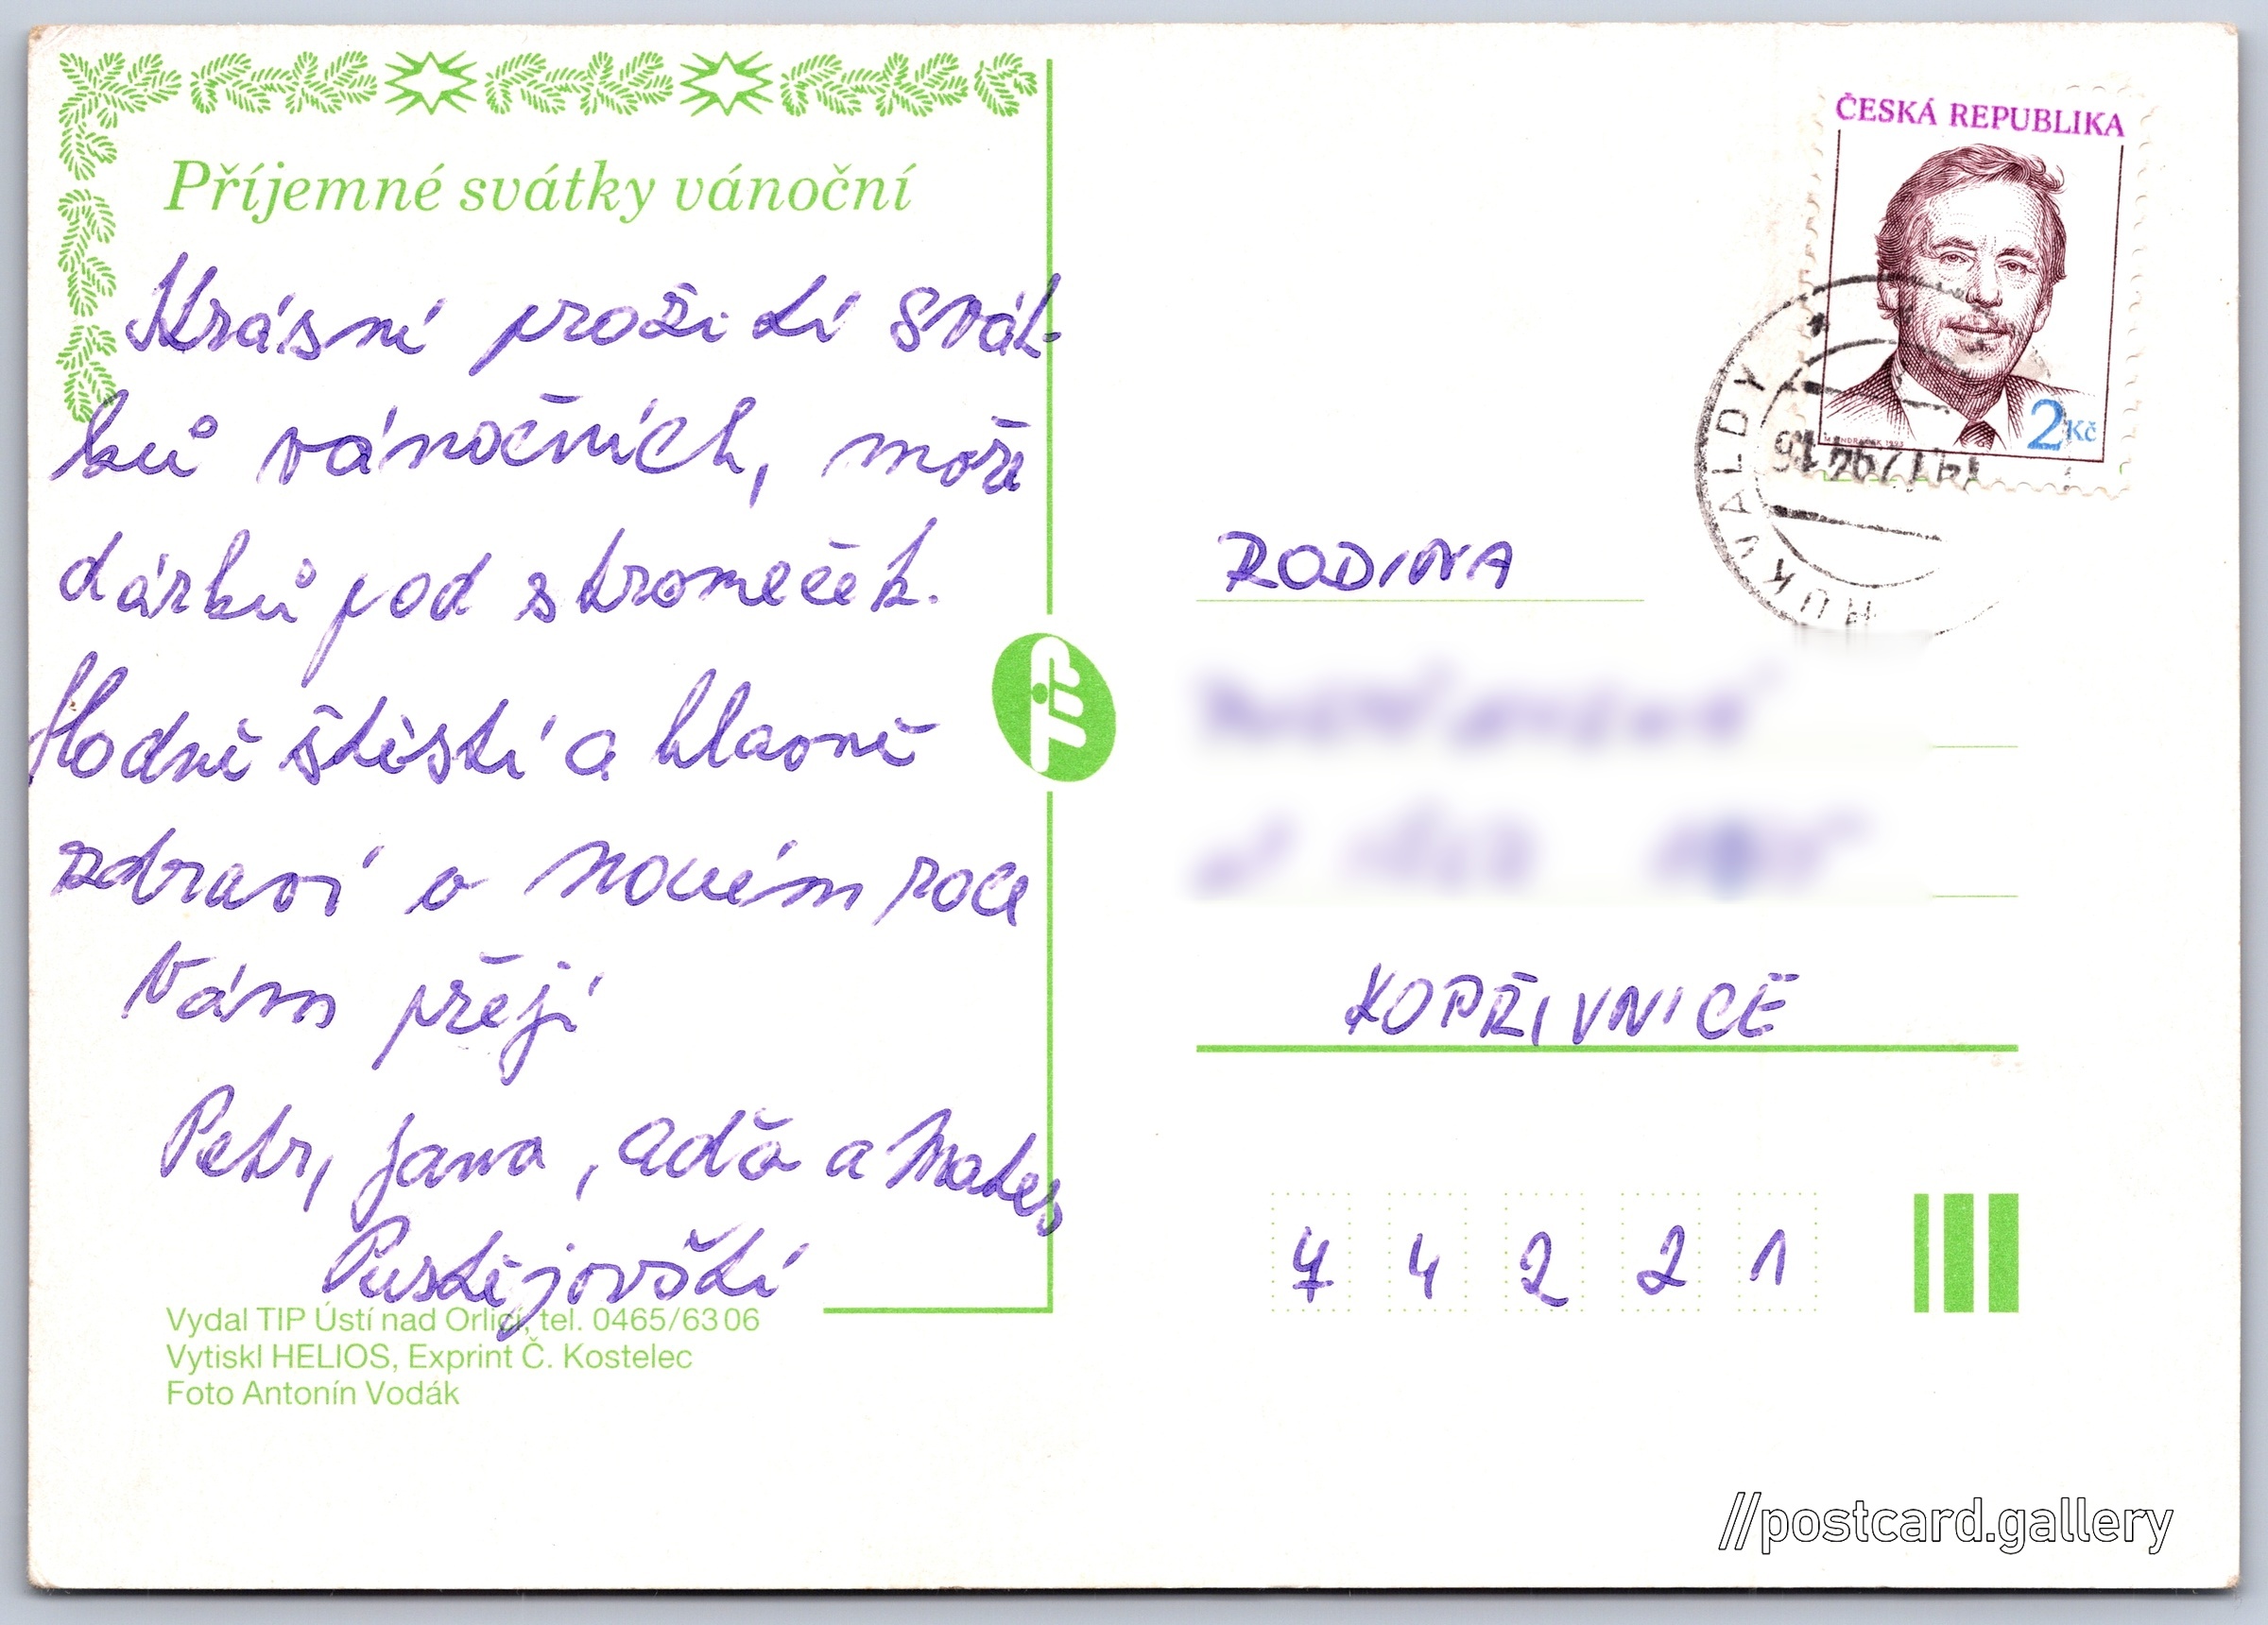 Příjemné svátky vánoční
Krásné prožití svát-
ků vánočních, moře
dárků pod stromeček.
Hodně štěstí a hlavně
zdraví v novém roce
Vám přejí
Petr, Jana, Aďa a Mates
Pustějovští
Vydal TIP Ústí nad Orlicí, tel. 0465/63 06
Vytiskl HELIOS, Exprint Č. Kostelec
Foto Antonín Vodák
TIP
ČESKÁ REPUBLIKA
2 Kč
HUKVALDY
RODINA
KOPŘIVNICE
7 4 2 2 1
//postcard.gallery